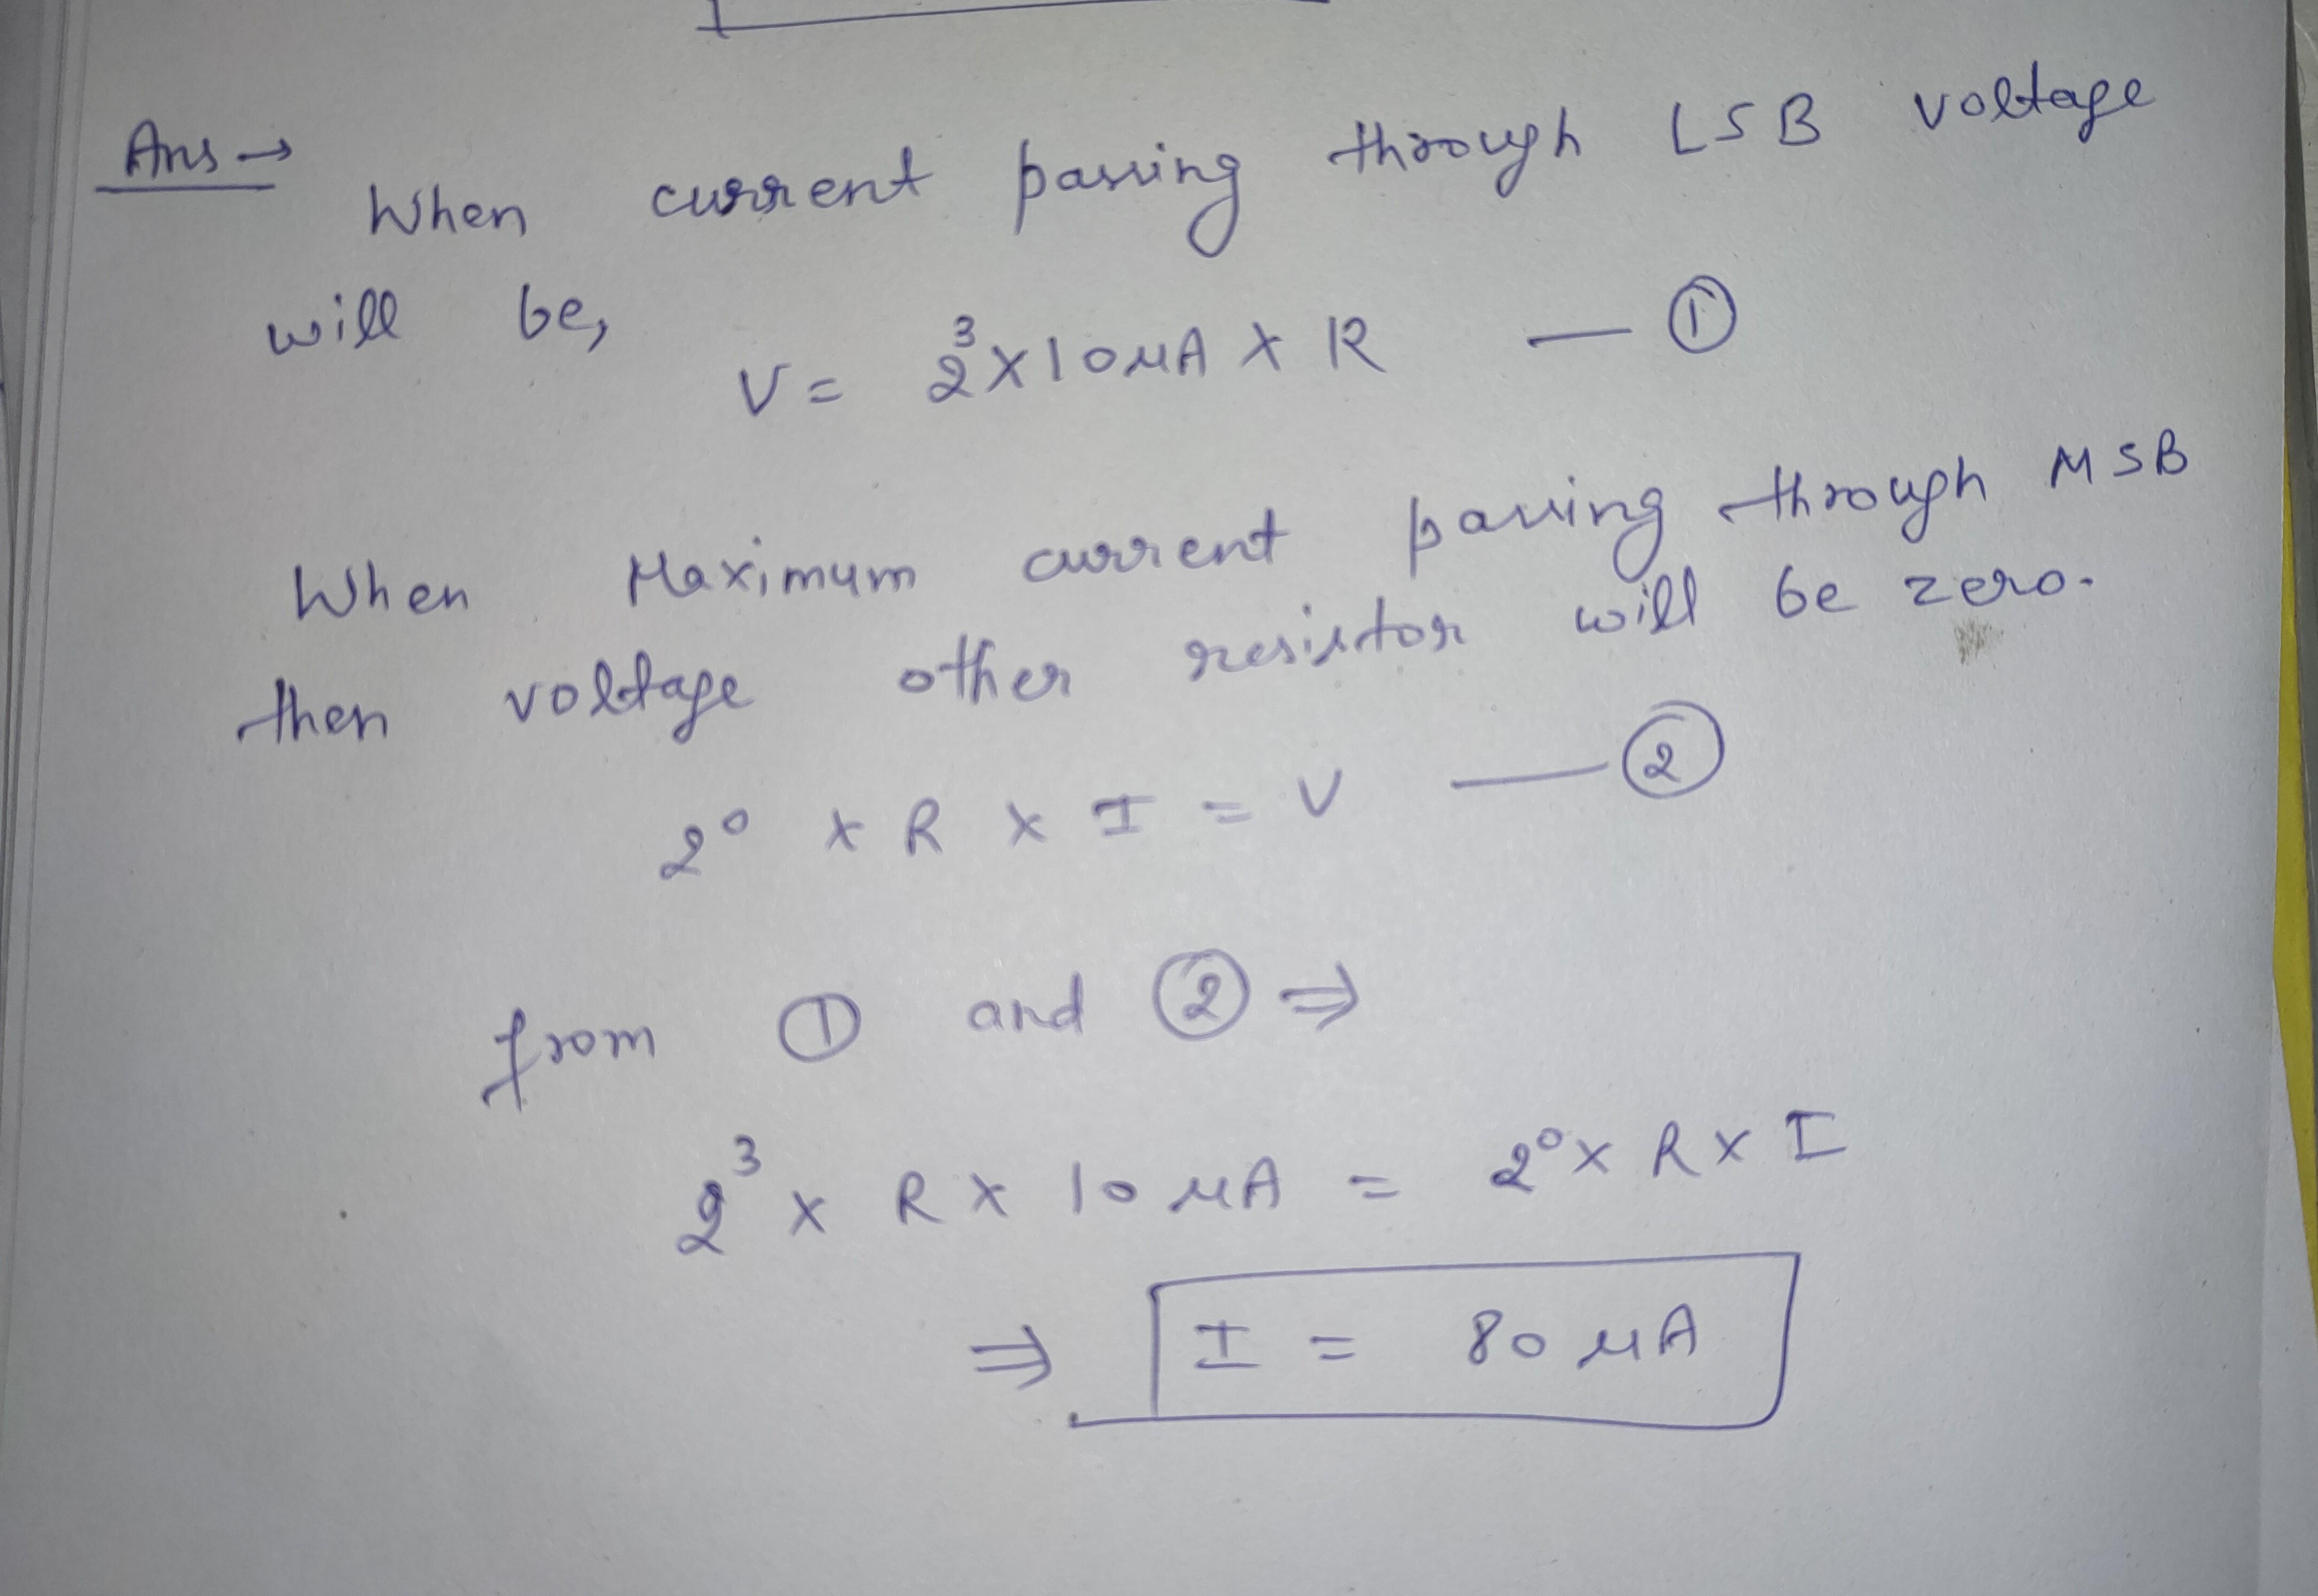 Ans →
When current passing through LSB voltage
will be,
V = 2³ × 10 μA × R — ①
When Maximum current passing through MSB
then voltage other resistor will be zero.
2⁰ × R × I = V — ②
from ① and ② ⇒
2³ × R × 10 μA = 2⁰ × R × I
⇒ I = 80 μA